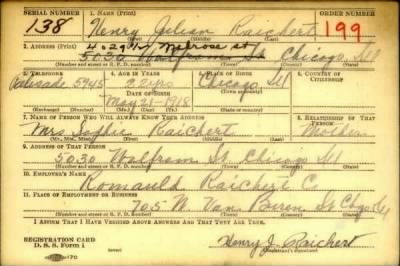 SERIAL NUMBER 1. NAME (Print) ORDER NUMBER
138 Henry Julian Raichert 199
4029 1/2 Melrose St
2. ADDRESS (Print)
5030 Wolfram St Chicago Ill
(Number and street or R. F. D. number) (Town) (County) (State)
3. TELEPHONE 4. AGE IN YEARS 5. PLACE OF BIRTH 6. COUNTRY OF CITIZENSHIP
Palisade 5945 22 Chicago
DATE OF BIRTH
May 21-1918 Ill
(Exchange) (No.) (Mo.) (Day) (Yr.) (State or country)
7. NAME OF PERSON WHO WILL ALWAYS KNOW YOUR ADDRESS 8. RELATIONSHIP OF THAT PERSON
Mrs Sophie Raichert Mother
(Mr., Mrs., Miss) (First) (Middle) (Last)
9. ADDRESS OF THAT PERSON
5030 Wolfram St Chicago Ill
(Number and street or R. F. D. number) (Town) (County) (State)
10. EMPLOYER'S NAME
Romauld Raichert C.
11. PLACE OF EMPLOYMENT OR BUSINESS
705 W. Van Buren St Chgo Ill
(Number and street or R. F. D. number) (Town) (County) (State)
I AFFIRM THAT I HAVE VERIFIED ABOVE ANSWERS AND THAT THEY ARE TRUE.
REGISTRATION CARD
D. S. S. Form 1 Henry J. Raichert
(Registrant's signature)